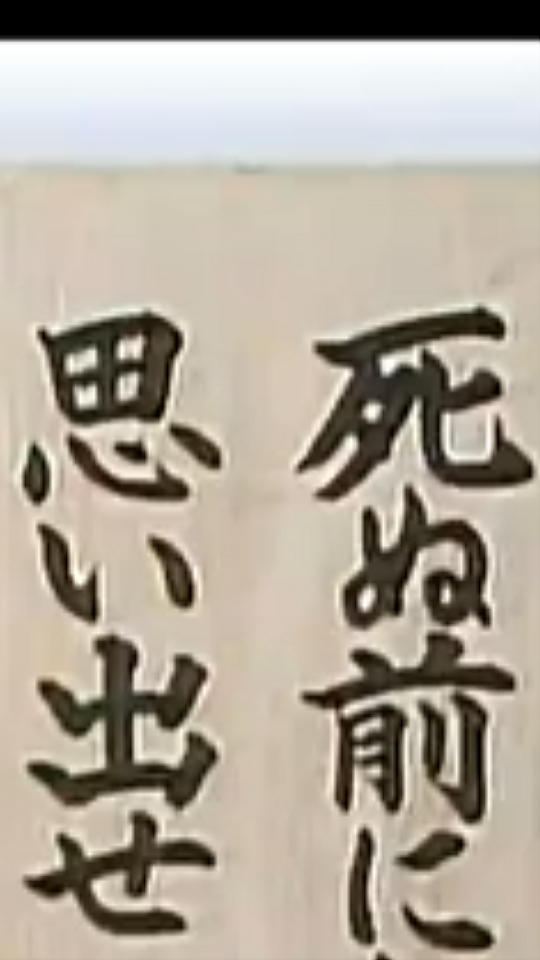 死ぬ前に
思い出せ